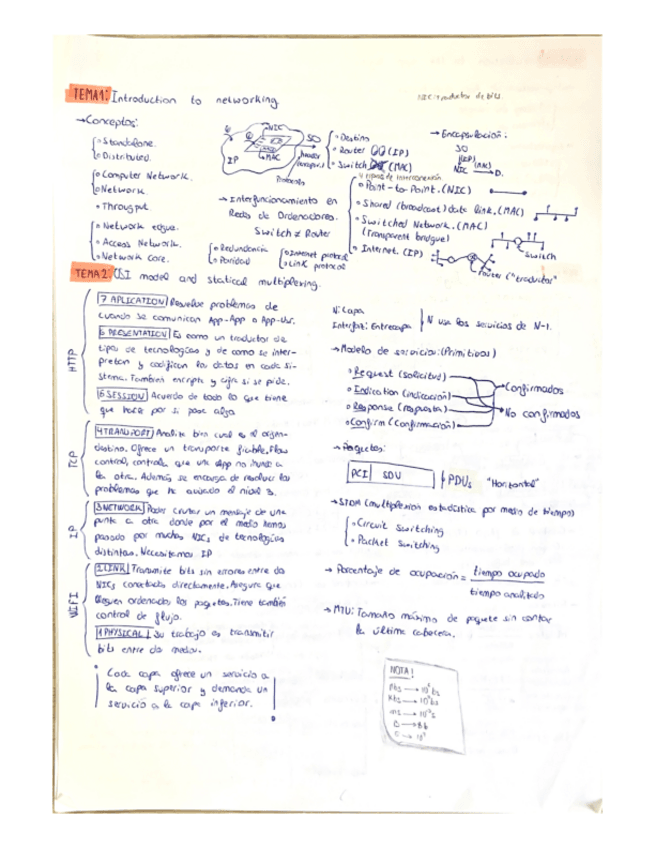 TEMA1: Introduction to networking
→Conceptos:
Standalone.
Distributed.
Computer Network.
Network
Througput
Network edgue.
Access Network.
Network core.
IP
NIC
MAC
SO
Protocolo
Destino
Router (IP)
Switch (MAC)
→ Interfuncionamiento en
Redes de Ordenadores.
Switch ≠ Router
Redundancia
Paridad
Internet protocol
Link protocol
→ Encapsulación:
SO
(IP)
(MAC)
NIC → D.
4 tipos de interconexión
Point-to Point. (NIC)
Shared (broadcast) data link. (MAC)
Switched Network. (MAC)
(Transparent bridgue)
Internet. (IP)
switch
router ("traductor")
TEMA2: OSI model and statical multiplexing.
HTTP
7 APLICATION Resuelve problemas de
cuando se comunican App-App o App-Usr.
6 PRESENTATION Es como un traductor de
tipos de tecnologías y de como se inter-
pretan y codifican los datos en cada si-
stema. Tambien encripta y cifra si se pide.
SESSION Acuerdo de todo lo que tiene
que hacer por si pasa algo
TCP
4 TRANSPORT Analiza bien cual es el origen-
destino. Ofrece un transporte fiable, flow
control, controla que una App no inunde a
la otra. Además se encarga de resolver los
problemas que ha causado el nivel 3.
IP
3 NETWORK Poder enviar un mensaje de una
punta a otra donde por el medio hemos
pasado por muchos NICs de tecnologías
distintas. Necesitamos IP
WIFI
2 LINK Transmite bits sin errores entre dos
NICs conectados directamente. Asegura que
lleguen ordenados los paquetes. Tiene también
control de flujo.
1 PHYSICAL Su trabajo es transmitir
bits entre dos medios.
Cada capa ofrece un servicio a
la capa superior y demanda un
servicio a la capa inferior.
N: Capa
Interfaz: Entrecapa
N usa los servicios de N-1.
→ Modelo de servicios: (Primitivas)
Request (solicitud)
Indication (indicación)
Response (respuesta)
Confirm (Confirmación)
Confirmados
No confirmados
→ Paquetes:
PCI SDU
PDUs "Horizontal"
→ STDM (multiplexion estadística por medio de tiempo)
Circuit Switching
Packet Switching
→ Porcentaje de ocupación = tiempo ocupado
tiempo analizado
→ MTU: Tamaño máximo de paquete sin contar
la última cabecera.
NOTA!